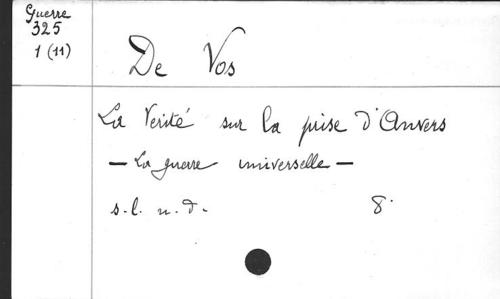 Guerre
325
1 (11)
De Vos
La Verité sur la prise d'Anvers
— La guerre universelle —
s.l. n.d. 8°